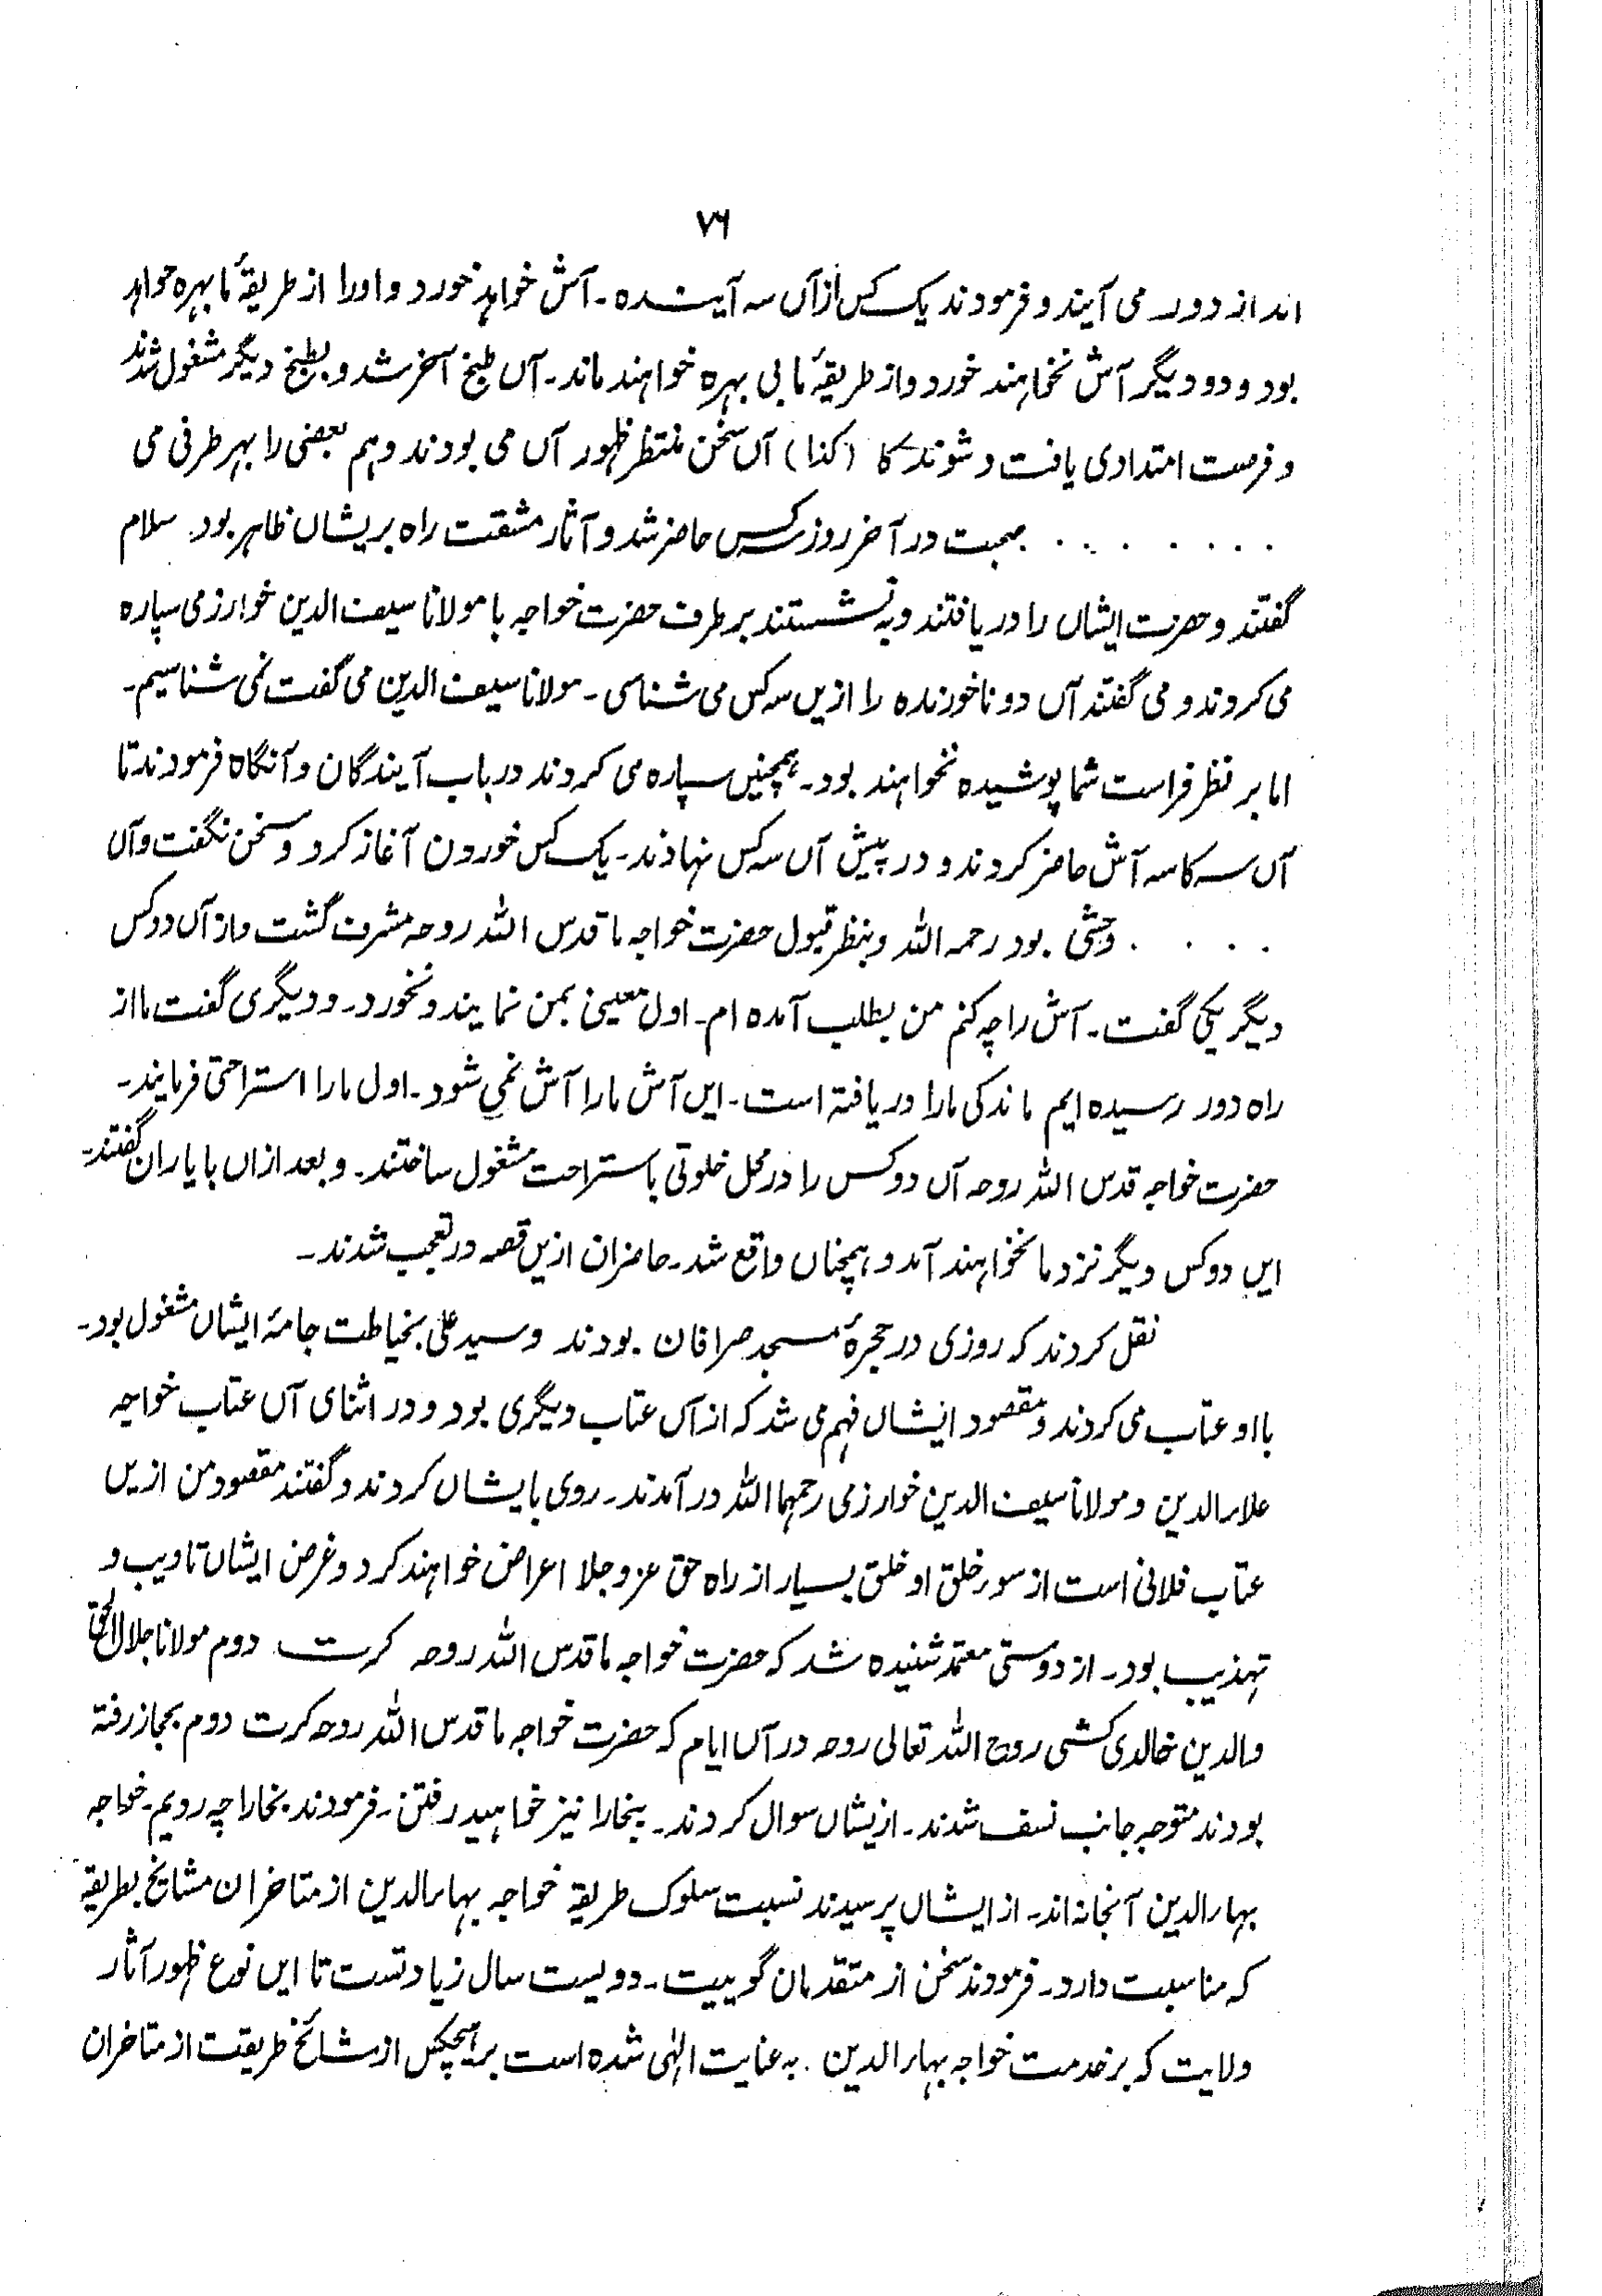 ۷۶
اند از دور می آیند و فرمودند یک کس ازآں سه آینده ۔ آش خواہد خورد و اورا از طریقۂ ما بہره خواہد
بود و دو دیگر آش نخواہند خورد و از طریقۂ ما بی بہره خواہند ماند ۔ آں طبخ آخر شد و بطبخ دیگر مشغول شدند
و فرصت امتدادی یافت و شوندگا (کذا) آں سخن منتظر ظہور آں می بودند و ہم بعضی را بہر طرفی می
. . . . . . . . صحبت در آخر روز سه کس حاضر شد و آثار مشقت راه بریشاں ظاہر بود۔ سلام
گفتند و حضرت ایشاں را دریافتند و بہ نشستند بر طرف حضرت خواجہ با مولانا سیف الدین خوارزمی سپاره
می کردند و می گفتند آں دو ناخورنده را ازیں سه کس می شناسی ۔ مولانا سیف الدین می گفت نمی شناسیم ۔
اما بر نظر فراست شما پوشیده نخواہند بود ۔ ہمچنیں سپاره می کردند در باب آیندگان و آنگاه فرمودند تا
آں سه کاسه آش حاضر کردند و در پیش آں سه کس نہادند ۔ یک کس خوردن آغاز کرد و سخن نگفت و آں
. . . . وحشی بود رحمه الله و بنظر قبول حضرت خواجه ما قدس الله روحه مشرف گشت و از آں دو کس
دیگر یکی گفت ۔ آش را چه کنم من بطلب آمده ام ۔ اول معینی بمن نمایند و نخورد ۔ و دیگری گفت ما از
راه دور رسیده ایم ماندگی ما را دریافته است ۔ ایں آش ما را آش نمی شود ۔ اول ما را استراحتی فرمایند ۔
حضرت خواجه قدس الله روحه آں دو کس را در محل خلوتی باستراحت مشغول ساختند ۔ و بعد ازاں با یاران گفتند ۔
ایں دو کس دیگر نزد ما نخواہند آمد و ہمچناں واقع شد ۔ حاضران ازیں قصه در تعجب شدند ۔
نقل کردند که روزی در حجرۂ مسجد صرافان بودند و سید علی بخیاطت جامۂ ایشاں مشغول بود ۔
با او عتاب می کردند و مقصود ایشاں فہم می شد که از آں عتاب دیگری بود و در اثنای آں عتاب خواجه
علاء الدین و مولانا سیف الدین خوارزمی رحمہما الله در آمدند ۔ روی بایشاں کردند و گفتند مقصود من ازیں
عتاب فلانی است از سوء خلق او خلق بسیار از راه حق عز و جلا اعراض خواہند کرد و غرض ایشاں تادیب و
تہذیب بود ۔ از دوستی معتمد شنیده شد که حضرت خواجه ما قدس الله روحه کرت دوم مولانا جلال الحق
والدین خالدی کشی روح الله تعالی روحه در آں ایام که حضرت خواجه ما قدس الله روحه کرت دوم بحجاز رفته
بودند متوجه جانب نسف شدند ۔ ازیشاں سوال کردند ۔ ببخارا نیز خواہید رفتن ۔ فرمودند بخارا چه رویم ۔ خواجه
بہاء الدین آنجا نه اند ۔ از ایشاں پرسیدند نسبت سلوک طریقۂ خواجه بہاء الدین از متاخران مشایخ بطریقۂ
که مناسبت دارد ۔ فرمودند سخن از متقدمان گوییت ۔ دویست سال زیادتست تا ایں نوع ظہور آثار
ولایت که بر خدمت خواجه بہاء الدین . به عنایت الہٰی شده است بر ہیچکس از مشائخ طریقت از متاخران